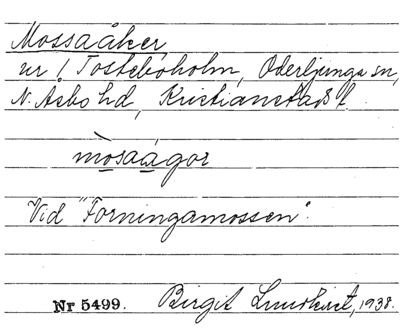 Mossaåker
ur ! Tosteboholm, Oderljunga sn,
N. Åsbo hd, Kristianstads l.
mosaágor
Vid "Forningamossen".
Nr 5499. Birgit Lundkvist, 1938.